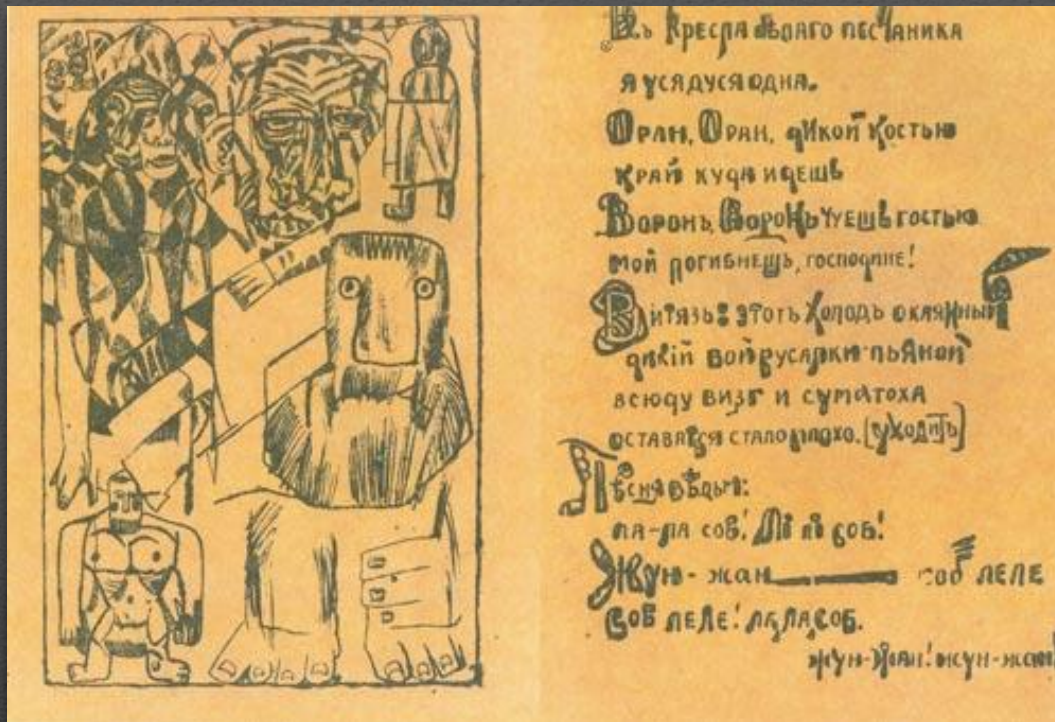 Въ кресла бѣлаго песчаника
я усядуся одна.
Оран, Оран, дикой костью
край куда идешь
Воронъ, Воронъ чуешь гостью
мой погибнешь, господине!
Витязь: этотъ холодъ окаянный
дикій вой русалки пьяной
всюду визг и суматоха
оставатся стало плохо. (уходитъ)
Пѣсня вѣдьм:
ла-ла сов! Ли ли соб!
Жун-жан — соб леле
соб леле! ла, ла, соб.
жун-жан! жун-жан!